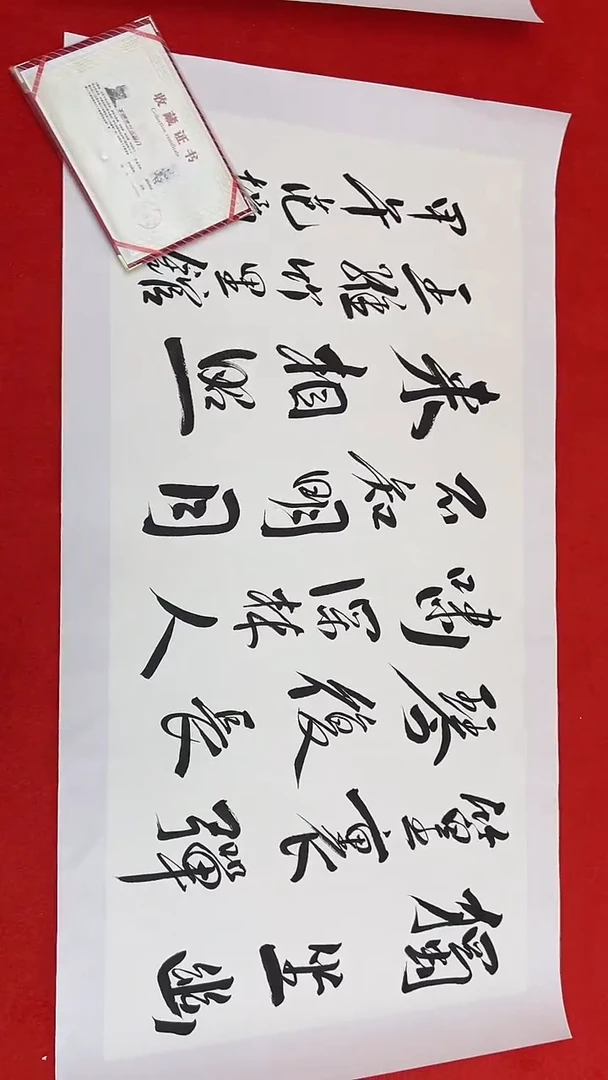 獨坐幽
篁裏彈
琴復長
嘯深林人
不知明月
來相照
王維竹里館
甲午
收藏证书
Collection certificate